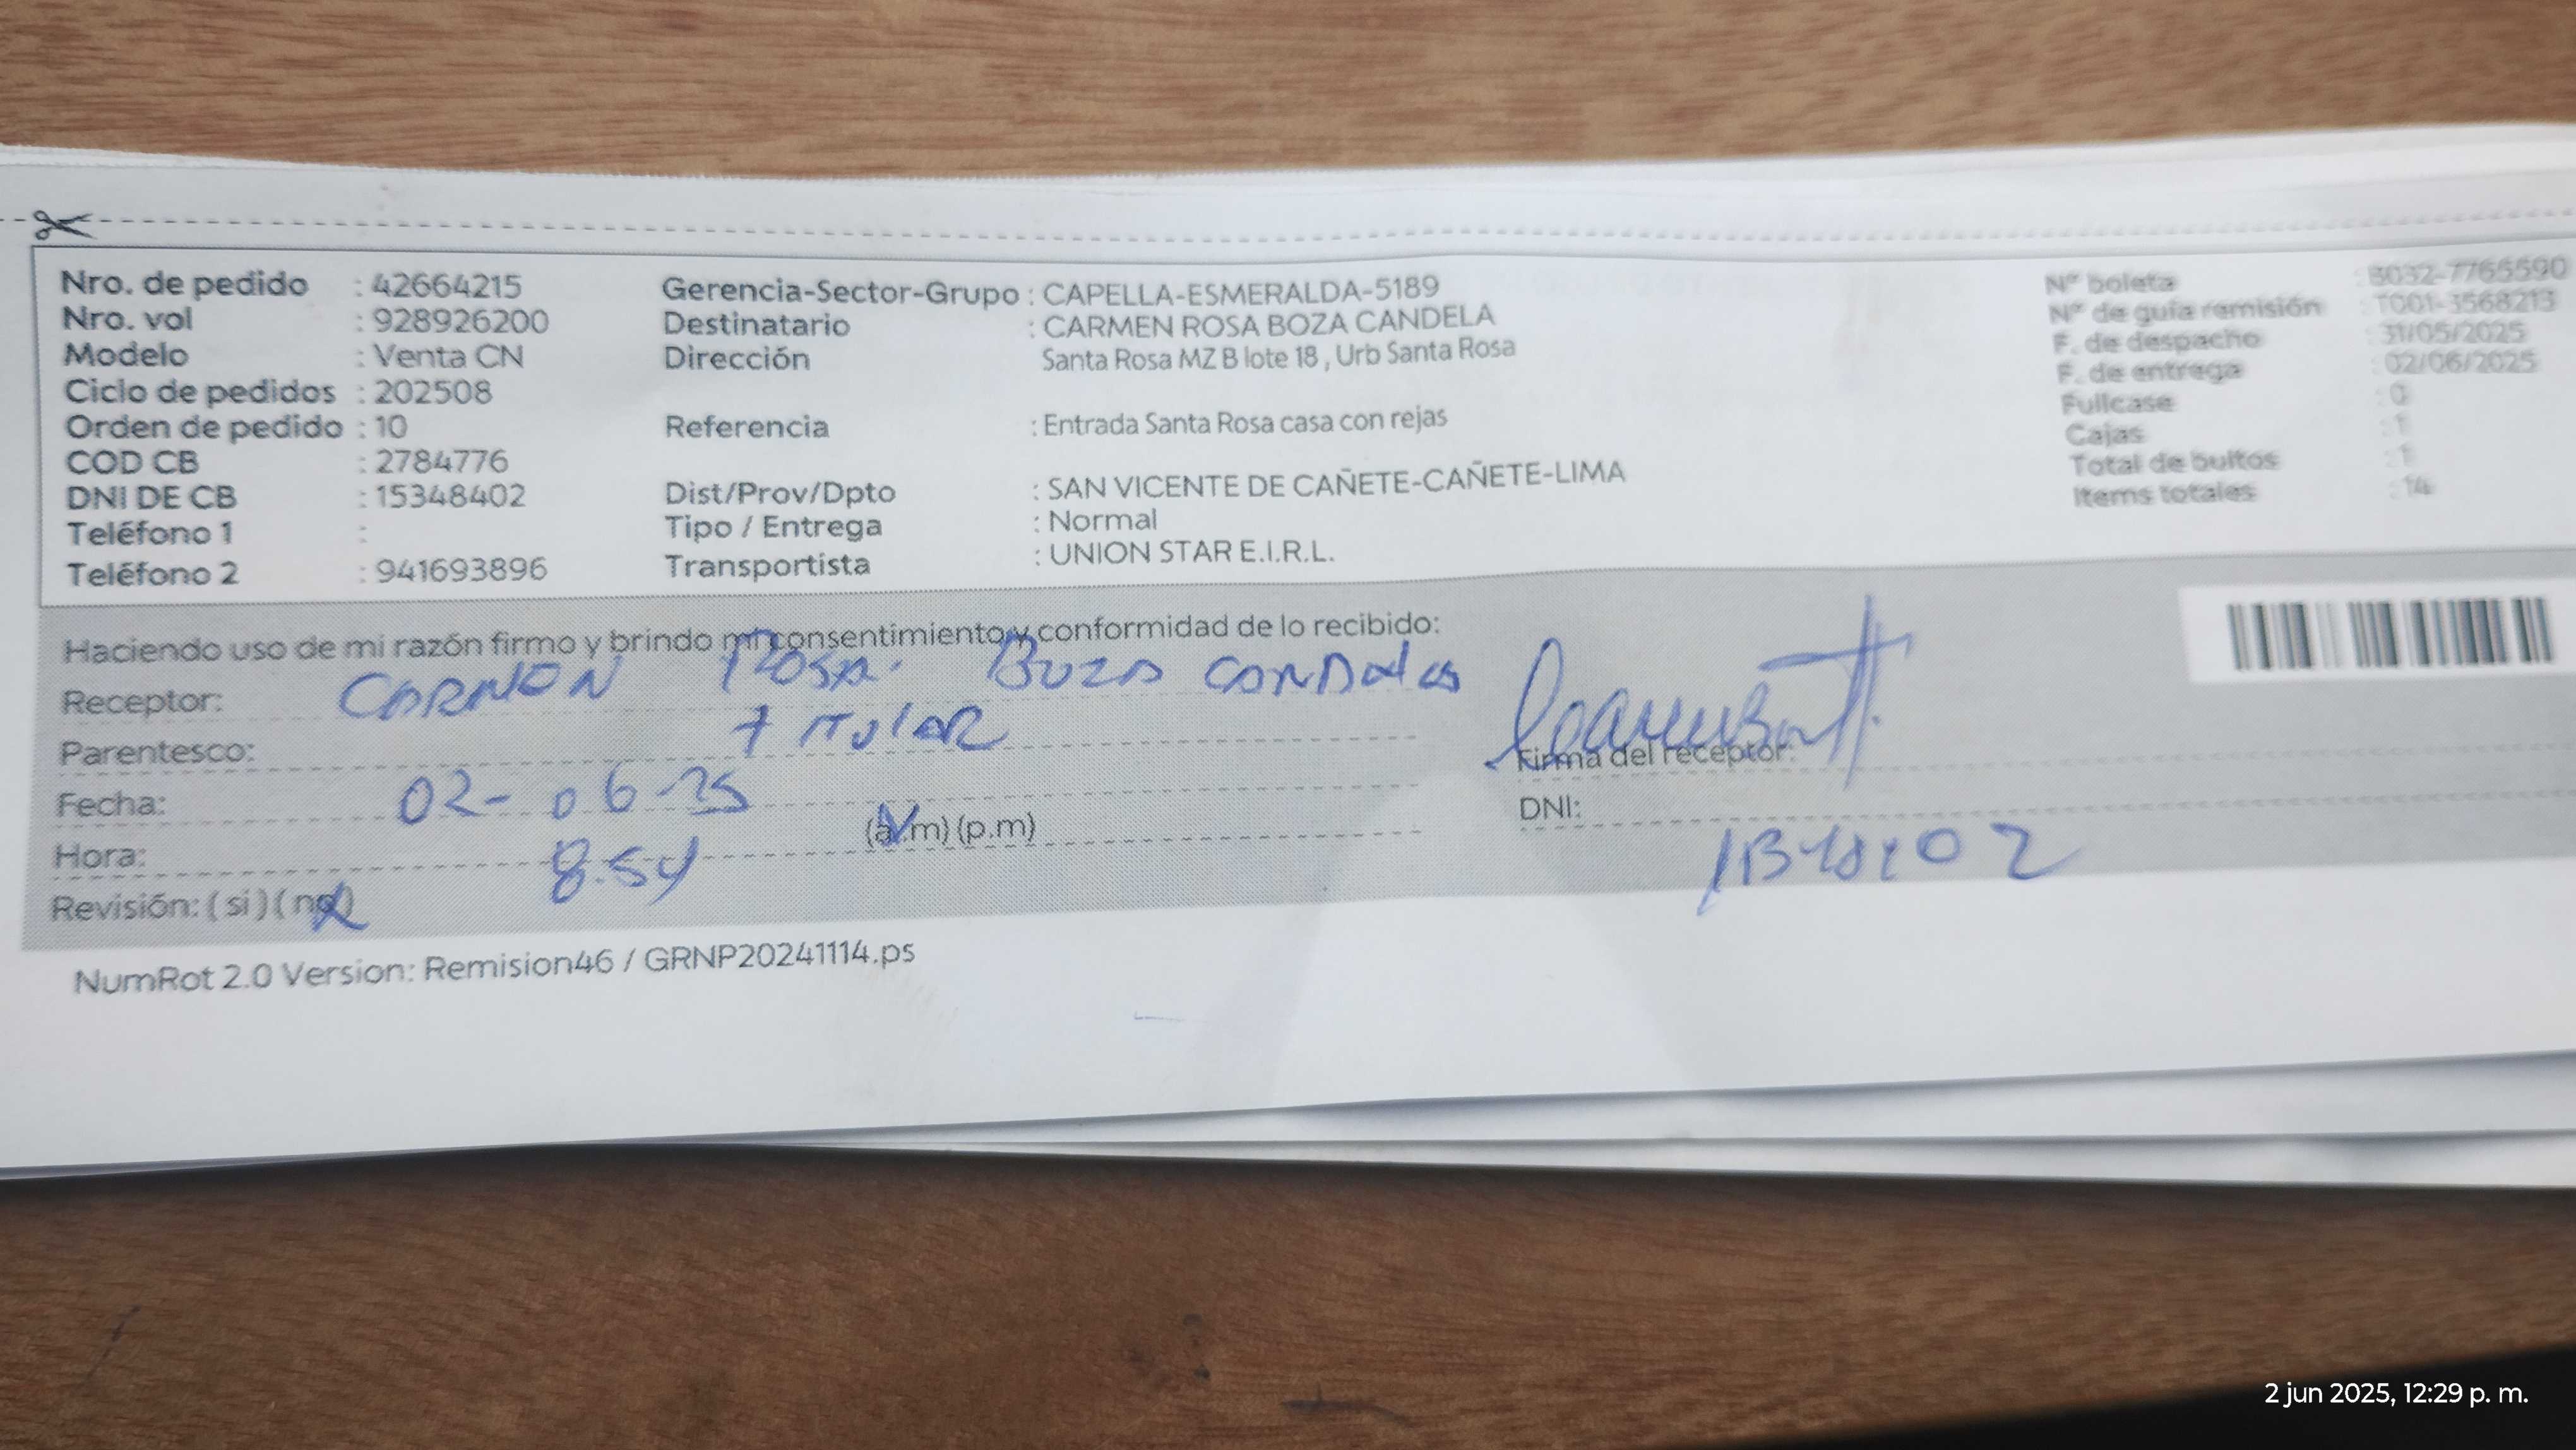 Nro. de pedido : 42664215
Nro. vol : 928926200
Modelo : Venta CN
Ciclo de pedidos : 202508
Orden de pedido : 10
COD CB : 2784776
DNI DE CB : 15348402
Teléfono 1 :
Teléfono 2 : 941693896
Gerencia-Sector-Grupo : CAPELLA-ESMERALDA-5189
Destinatario : CARMEN ROSA BOZA CANDELA
Dirección Santa Rosa MZ B lote 18 , Urb Santa Rosa
Referencia : Entrada Santa Rosa casa con rejas
Dist/Prov/Dpto : SAN VICENTE DE CAÑETE-CAÑETE-LIMA
Tipo / Entrega : Normal
Transportista : UNION STAR E.I.R.L.
N° boleta : B032-7765590
N° de guía remisión : T001-3568213
F. de despacho : 31/05/2025
F. de entrega : 02/06/2025
Fullcase : 0
Cajas : 1
Total de bultos : 1
Items totales : 14
Haciendo uso de mi razón firmo y brindo mi consentimiento y conformidad de lo recibido:
Receptor: CARMEN Rosa. Boza
Parentesco: titular
Fecha: 02-06-25
Hora: 8.54 (a.m) (p.m)
Revisión: ( si ) ( no )
Firma del receptor:
DNI:
NumRot 2.0 Version: Remision46 / GRNP20241114.ps
2 jun 2025, 12:29 p. m.